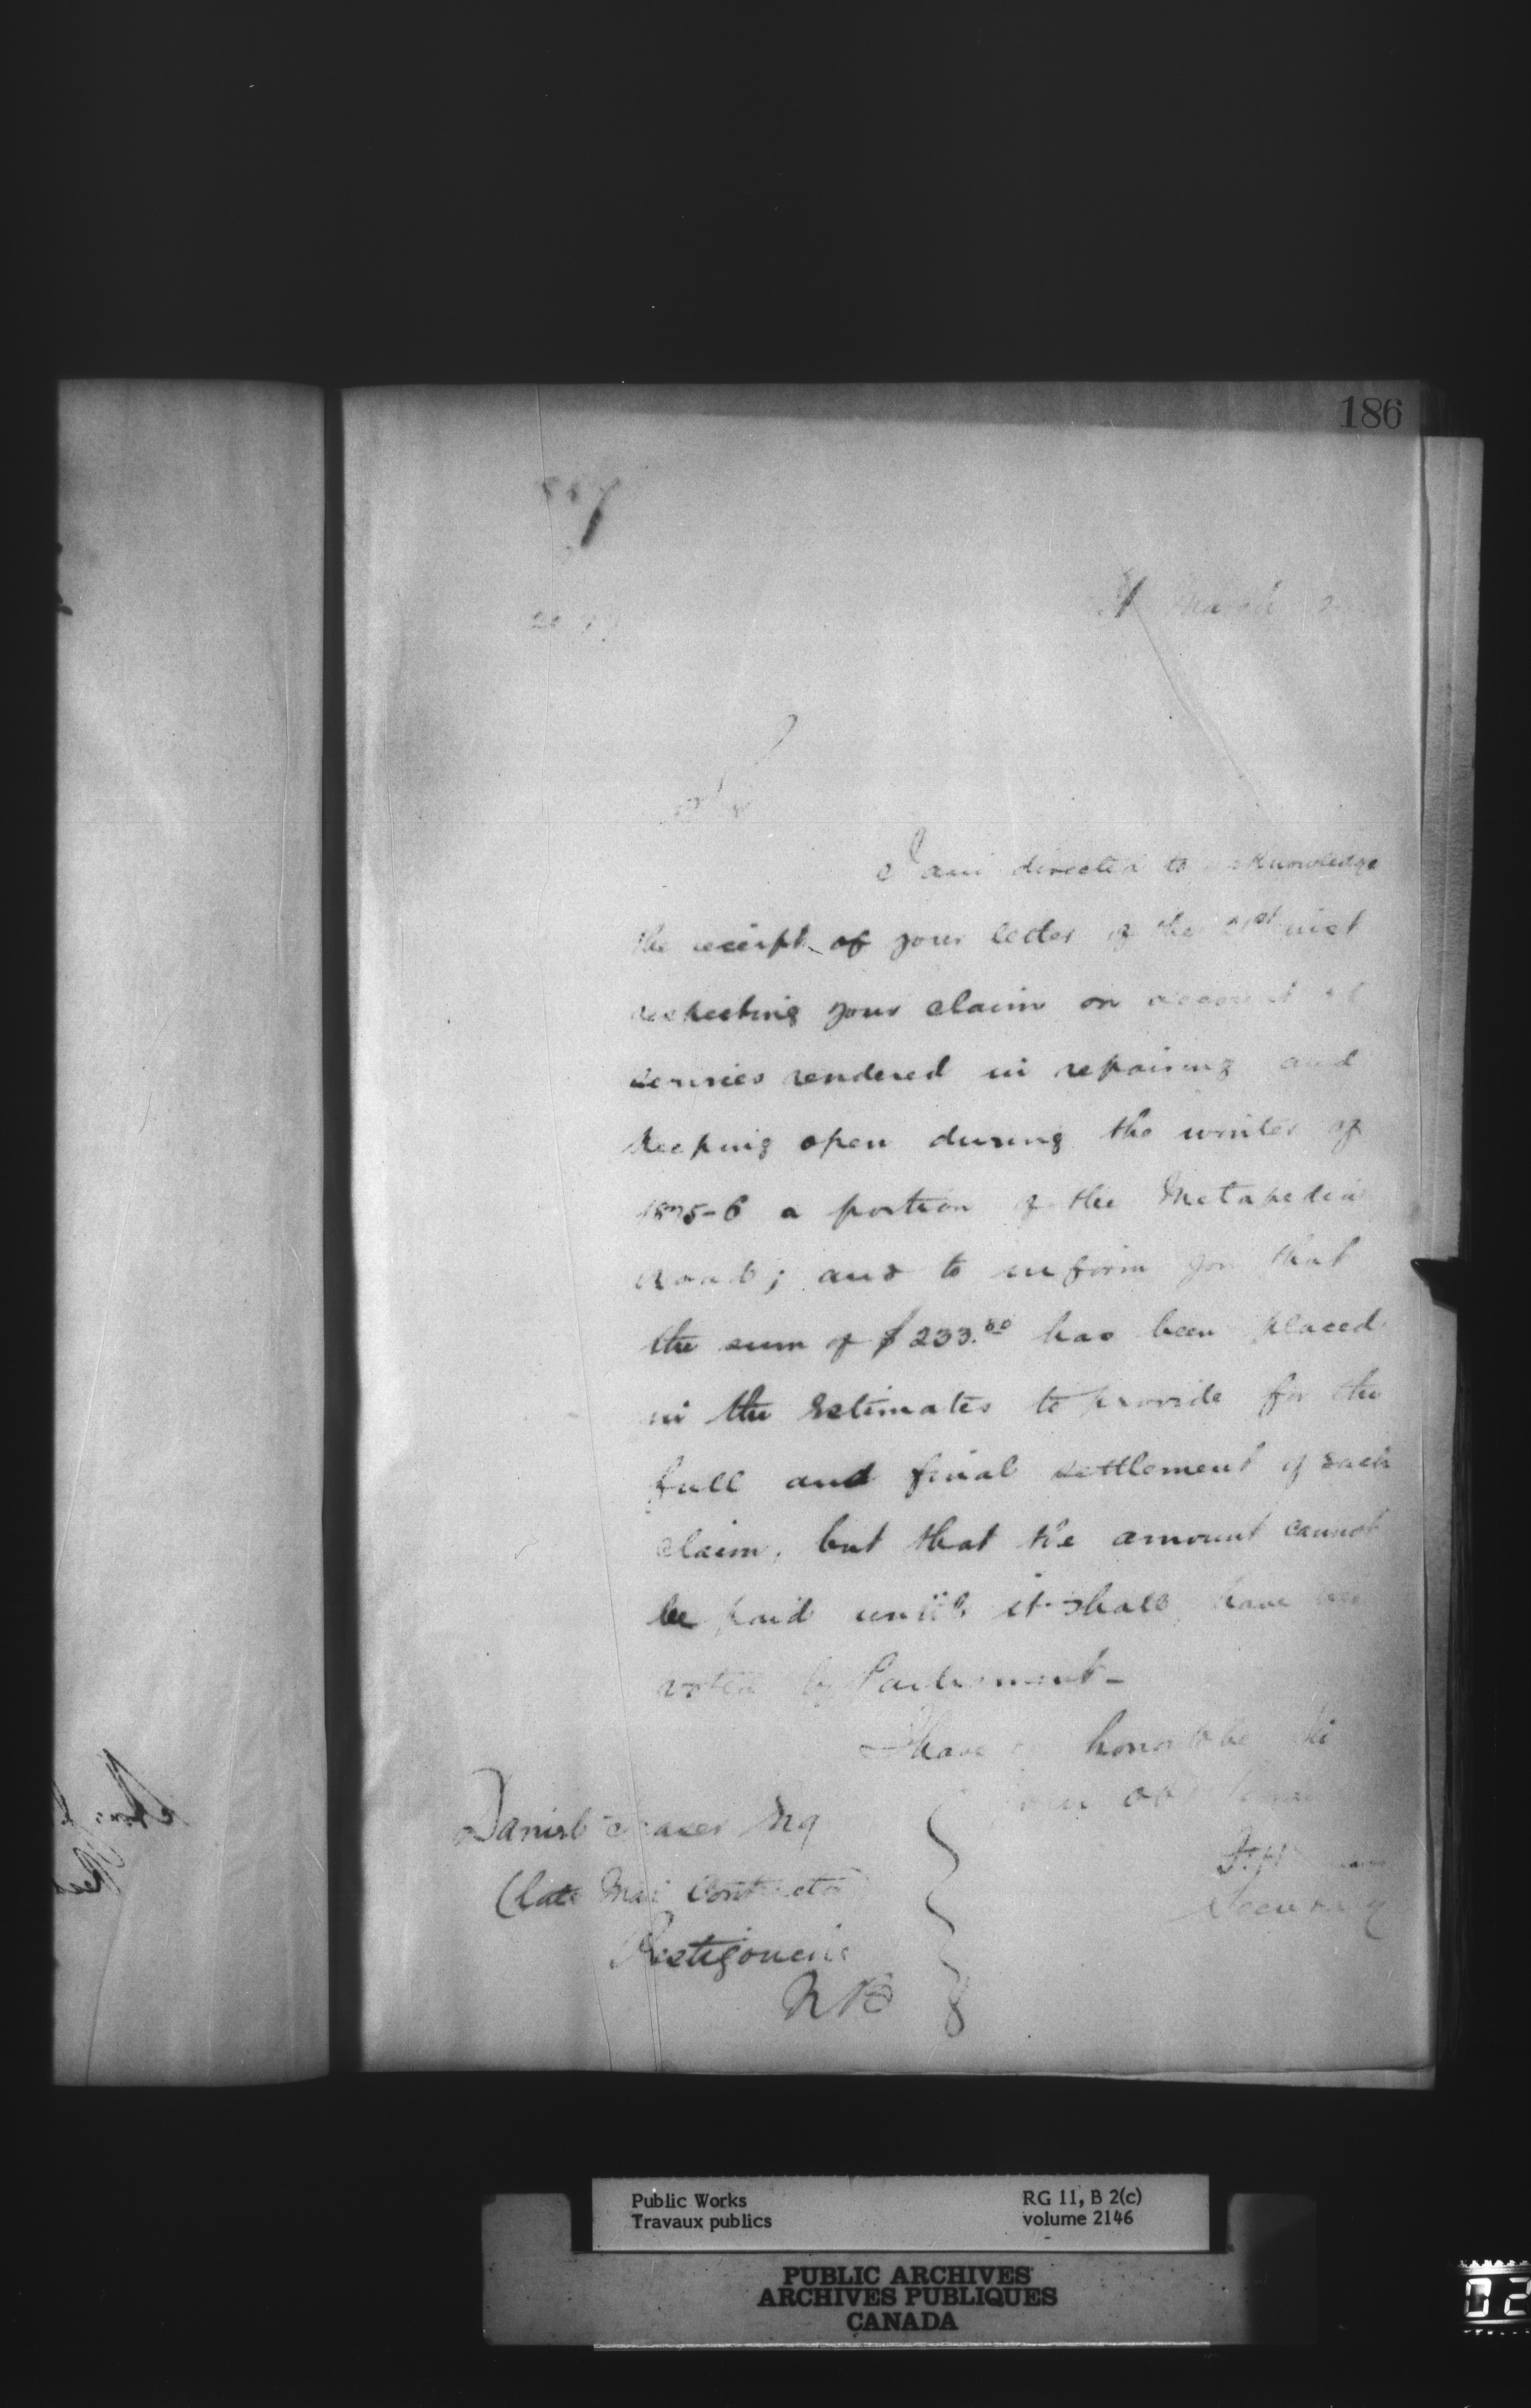 186
March
Sir
I am directed to acknowledge
the receipt of your letter of the 21st inst
respecting your claim on account of
services rendered in repairing and
keeping open during the winter of
1875-6 a portion of the Metapedia
Road; and to inform you that
the sum of $233.80 has been placed
in the Estimates to provide for the
full and final settlement of such
claim, but that the amount cannot
be paid until it shall have been
voted by Parliament -
I have the honor to be Sir
Your obt
Secretary
Daniel Fraser Esq
(late Mail Contractor)
Restigouche
NB
Public Works
Travaux publics
RG 11, B 2(c)
volume 2146
PUBLIC ARCHIVES
ARCHIVES PUBLIQUES
CANADA
02